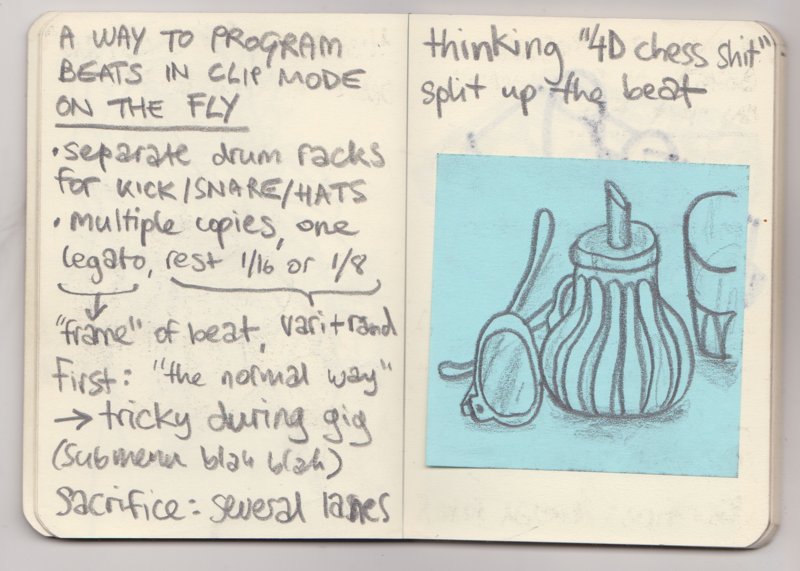 A WAY TO PROGRAM
BEATS IN CLIP MODE
ON THE FLY
• separate drum racks
for KICK/SNARE/HATS
• multiple copies, one
legato, rest 1/16 or 1/8
"frame" of beat, vari+rand
First: "the normal way"
→ tricky during gig
(submenu blah blah)
Sacrifice: several lanes
thinking "4D chess shit"
split up the beat